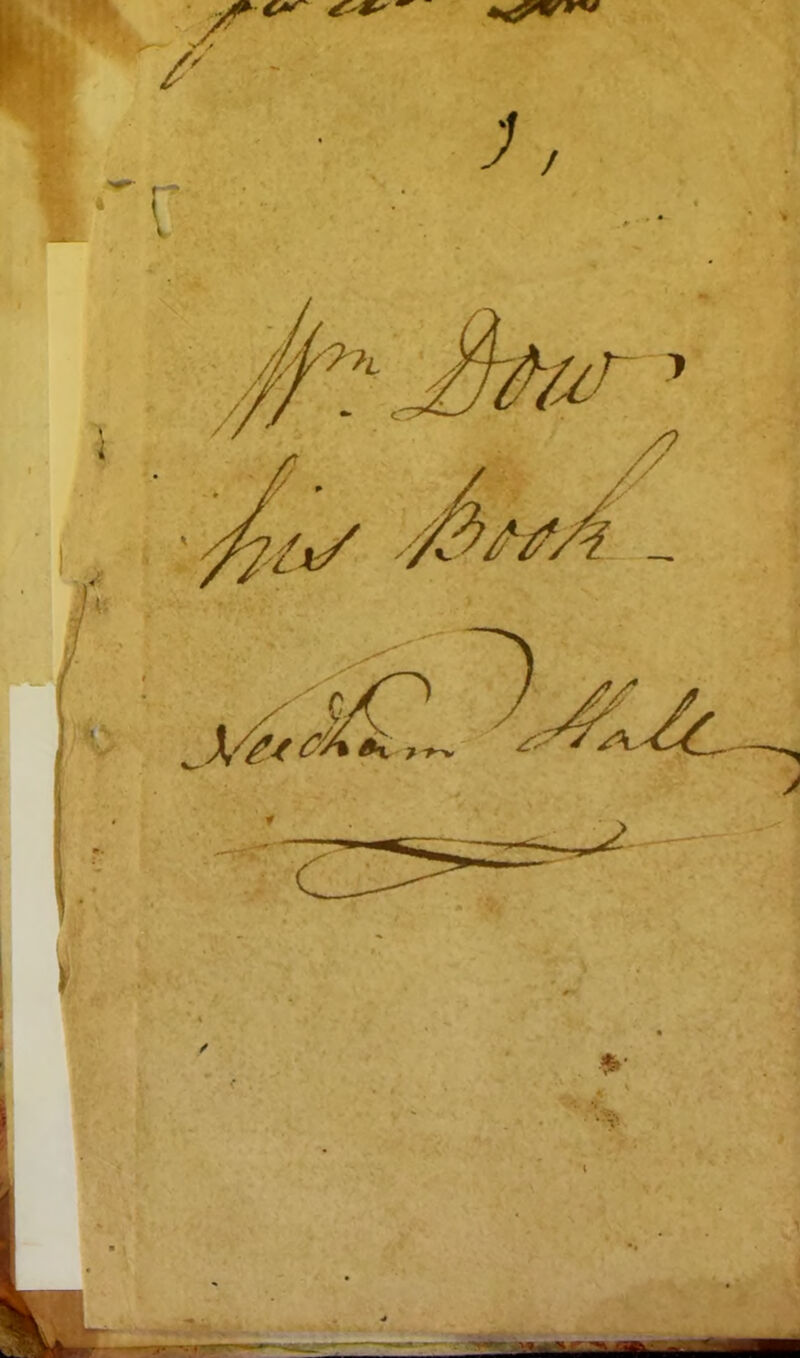 Wm. Dow
his Book -
Needham Hall